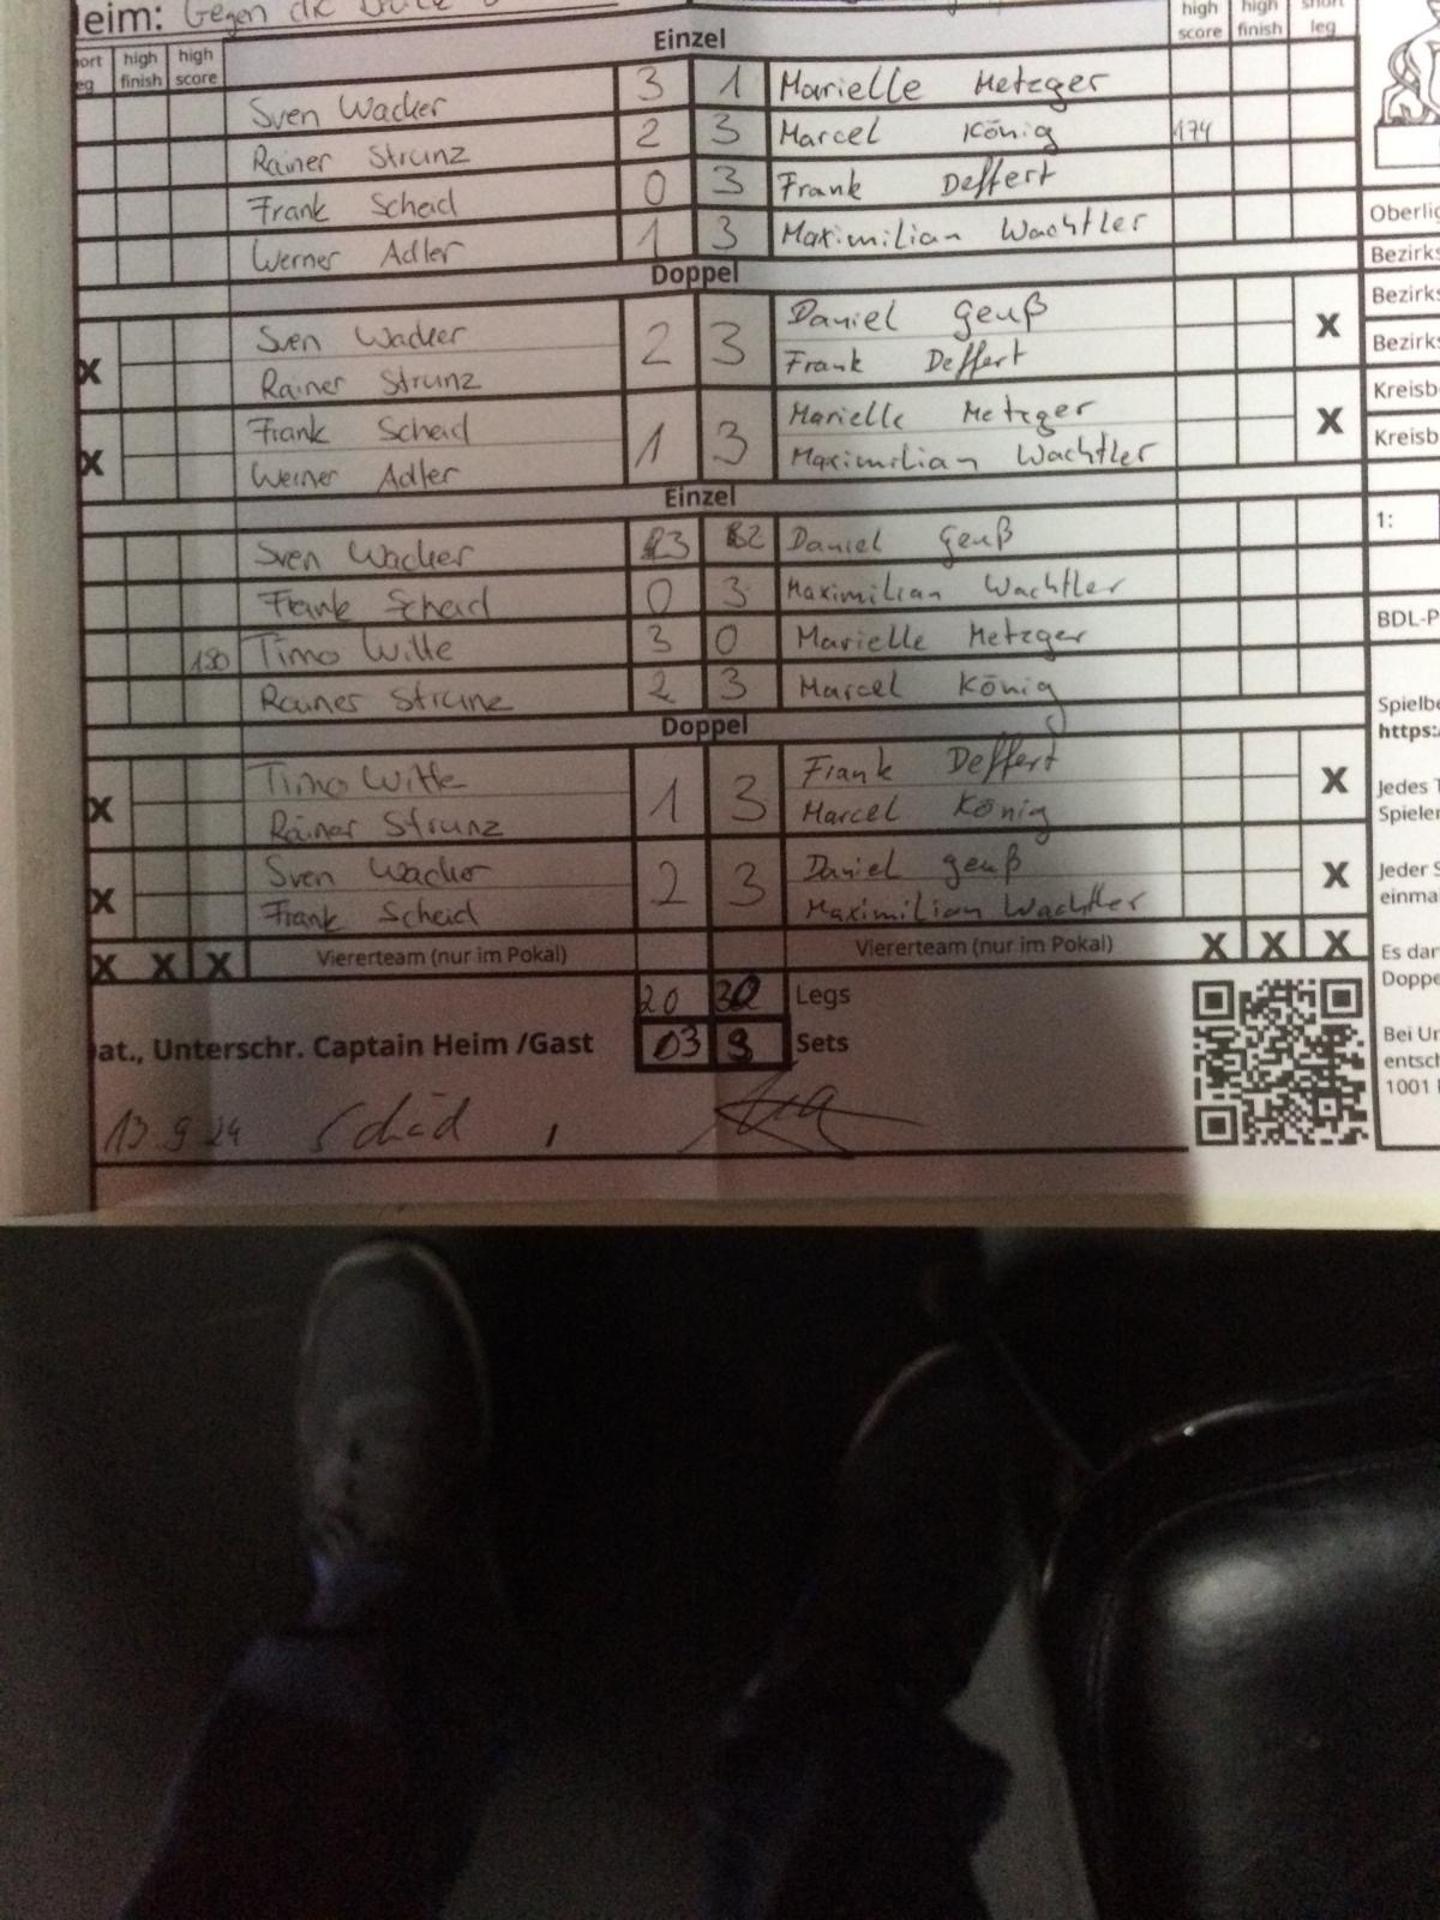 leim: Gegen die
ort high high Einzel high high short
eg finish score score finish leg
Sven Wacker 3 1 Marielle Metzger
Rainer Strunz 2 3 Marcel König 174
Frank Scheid 0 3 Frank Deffert
Werner Adler 1 3 Maximilian Wachtler
Oberlig
Doppel
Bezirks
Sven Wacker 2 3 Daniel Geuß X Bezirks
X Rainer Strunz Frank Deffert Bezirks
Frank Scheid 1 3 Marielle Metzger X Kreisb
X Werner Adler Maximilian Wachtler Kreisb
Einzel
1:
Sven Wacker 3 2 Daniel Geuß
Frank Scheid 0 3 Maximilian Wachtler
BDL-P
180 Timo Witte 3 0 Marielle Metzger
Rainer Strunz 2 3 Marcel König
Spielbe
Doppel
https:
Timo Witte 1 3 Frank Deffert X
X Rainer Strunz Marcel König
Jedes T
Spieler
Sven Wacker 2 3 Daniel Geuß X
X Frank Scheid Maximilian Wachtler
Jeder S
einma
X X X Viererteam (nur im Pokal) Viererteam (nur im Pokal) X X X
Es dar
Doppe
20 30 Legs
at., Unterschr. Captain Heim /Gast 03 9 Sets
Bei Un
entsch
1001
13.9.24 Scheid ,